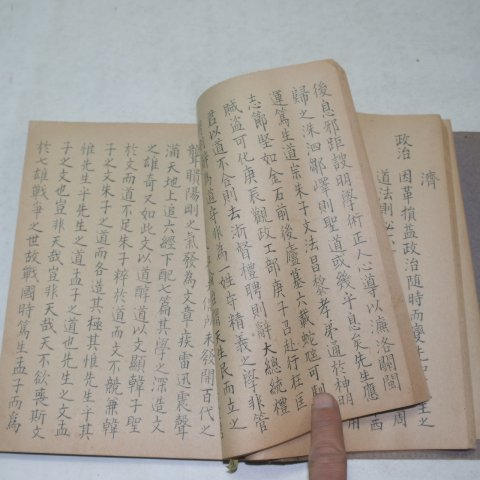 濟
政治 因革損益政治隨時而變
道法則必
後息邪距詖明學術正人心導以濂洛關閩
歸之洙泗鄒嶧則聖道或幾乎息矣先生應
運篤生道崇朱子文法昌黎孝弟通於神明
志節堅如金石前後廬墓六載蛇虺可馴
賊盜可化庚辰觀政工部庚子召赴行在匡
君以道不合則去浙督禮聘則辭大總統禮
姓守精義之學非管
生民而立之
未發開百代之
聾瞶陽剛之氣發為文章疾雷迅霆聲
滿天地上追六經下配七篇其學之深造文
之雄奇又如此文以道醇道以文顯韓子聖
於文而道不足朱子粹於道而文不競兼韓
子之文朱子之道而各造其極其惟先生乎其
惟先生乎先生之道孟子之道也先生之文孟
子之文也豈非天哉豈非天哉天不欲喪斯文
於七雄戰爭之世故戰國時篤生孟子而為